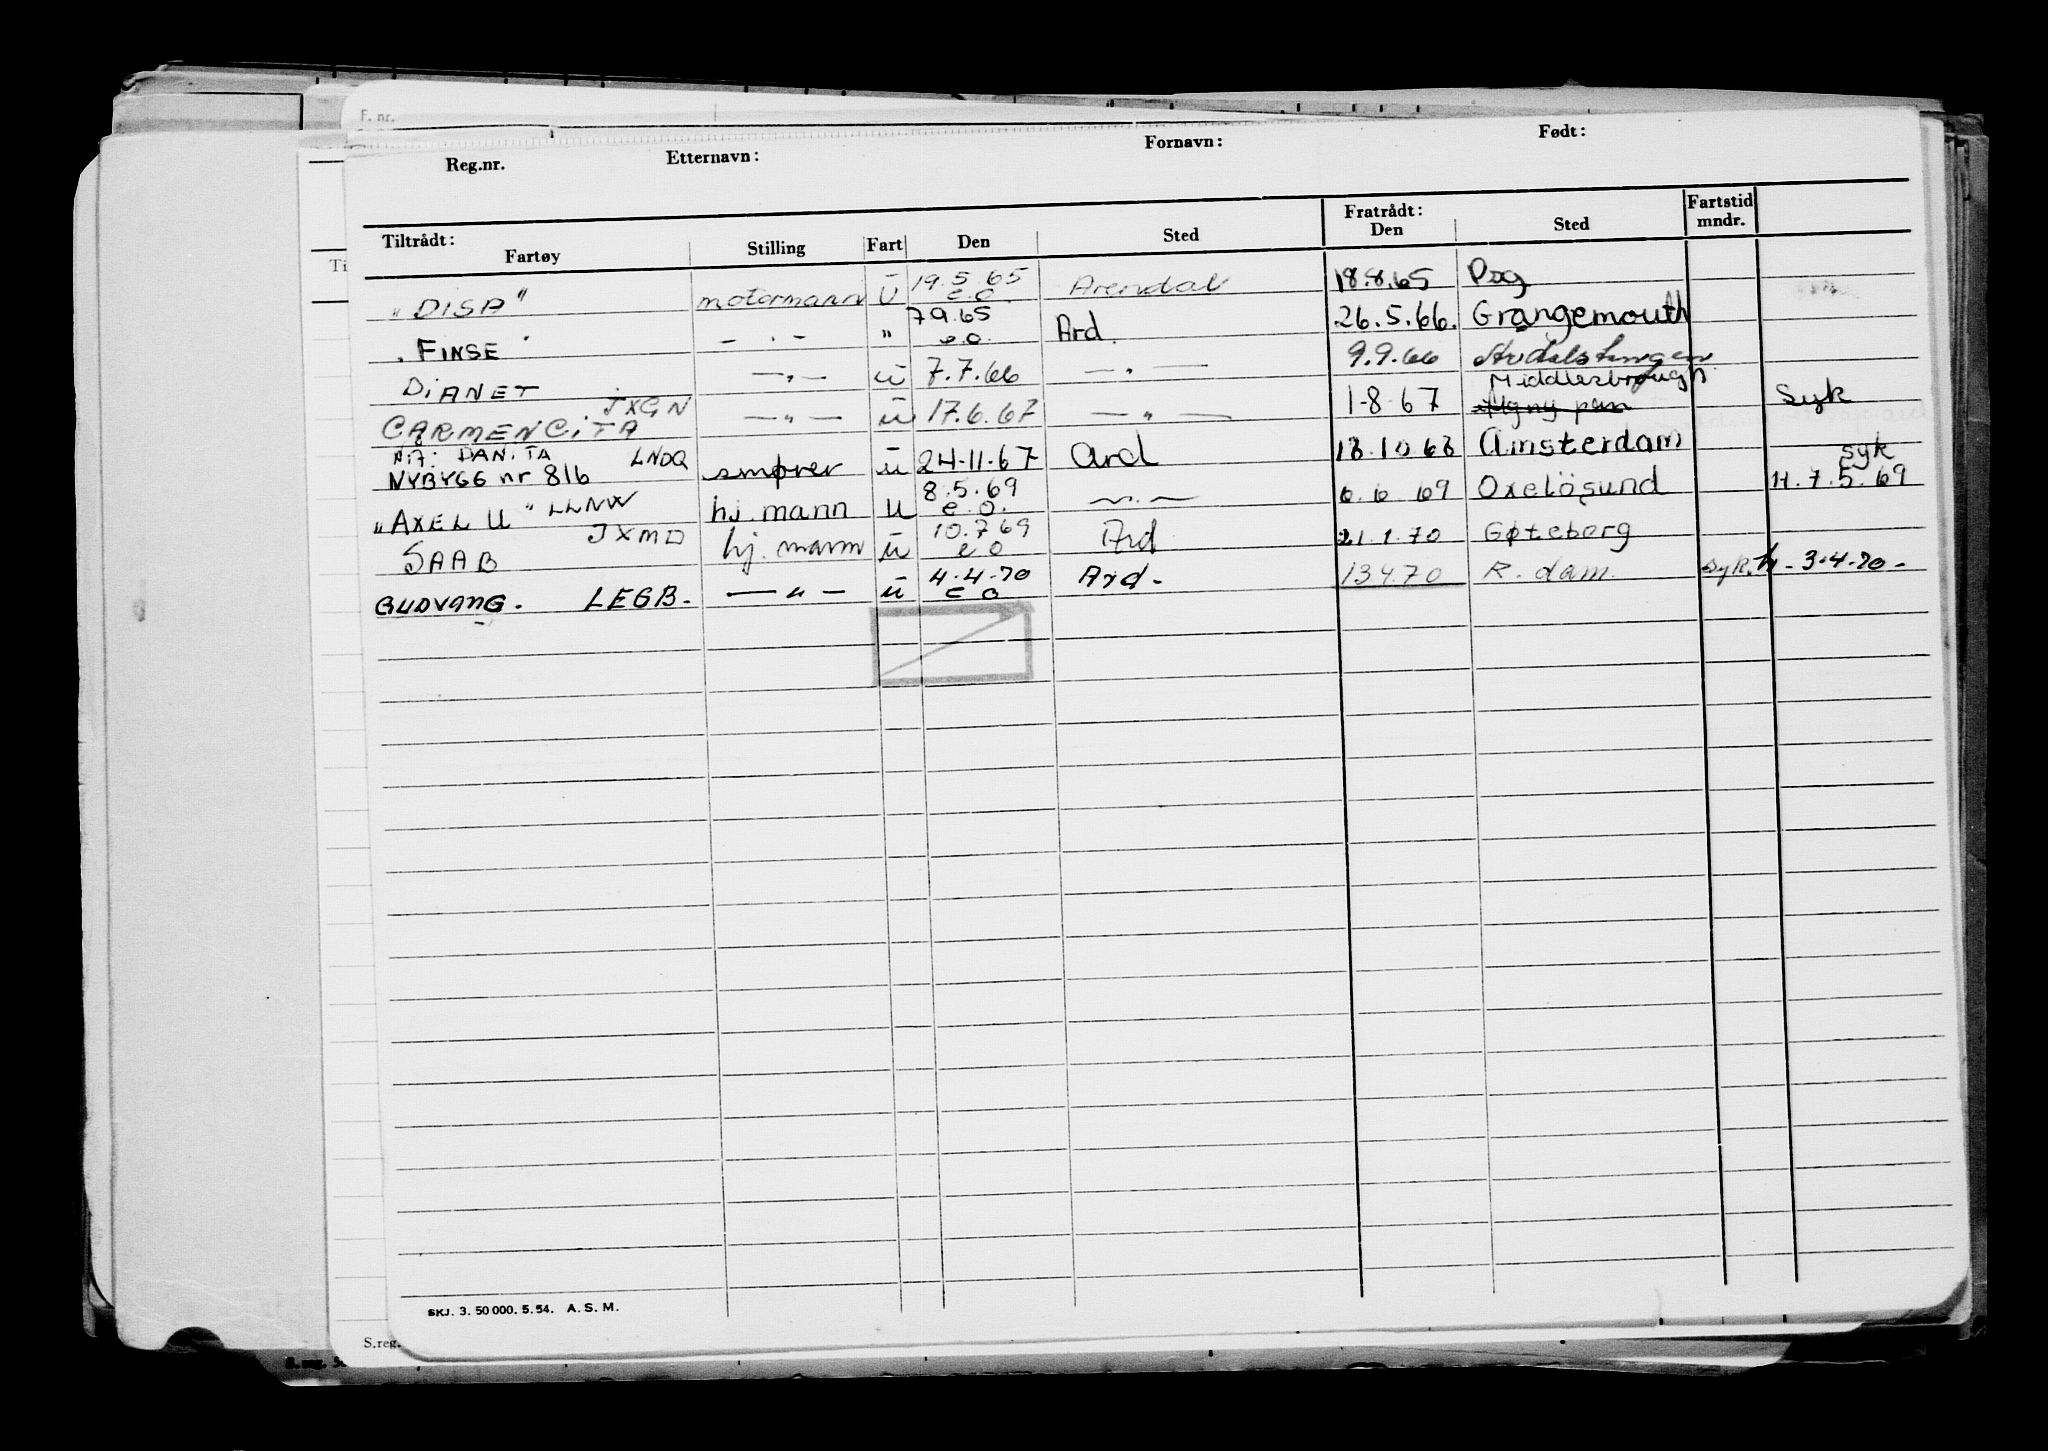 F. nr.
Reg.nr. Etternavn: Fornavn: Født:
Tiltrådt: Fratrådt: Fartstid
Fartøy Stilling Fart Den Sted Den Sted mndr.
Ti
19.5.65
"DISA" motormann U e.o. Arendal 18.8.65 Pog
7 9.65
"FINSE" — " — " e.o. Ard. 26.5.66. Grangemouth
DIANET — " — u 7.7.66 — " — 9.9.66
JXGN Middlesbrough
CARMENCITA — " — u 17.6.67 — " — 1-8-67 Syk
Nå: DANITA LNDQ
NYBYGG nr 816 smører u 24-11-67 Ard 18.10.68 Amsterdam
8.5.69 syk
"AXEL U" LLNW hj. mann U e.o. — " — 6.6.69 Oxelösund H.7.5.69
JXMD 10.7.69
SAAB hj. mann u e o Ard 21.1.70 Gøteborg
4-4-70
GUDVANG. LEGB. — " — u e o Ard- 13 4.70 R.dam. syk. h-3-4-70-
SKJ. 3. 50 000. 5. 54. A. S. M.
S.reg.
S. reg.